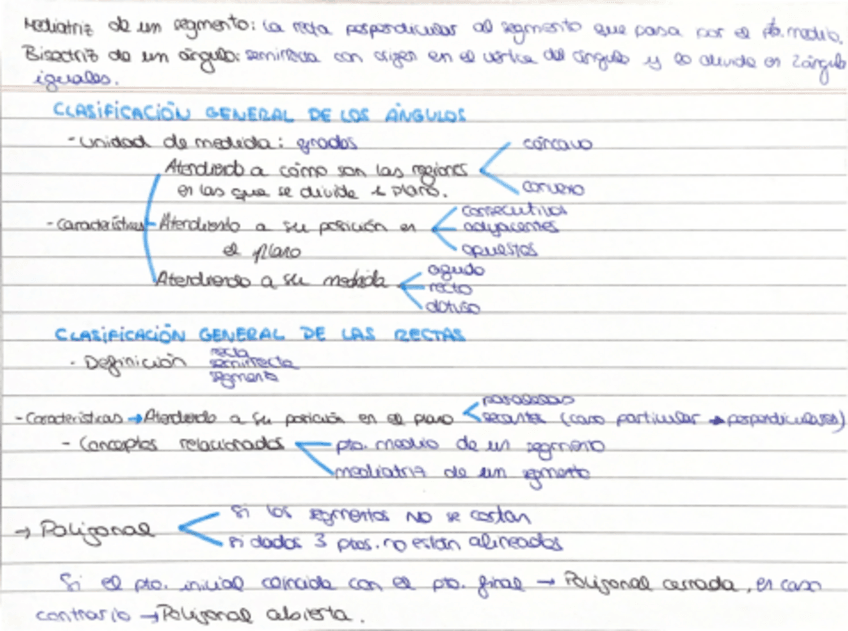 Mediatriz de un segmento: la recta perpendicular al segmento que pasa por el pto. medio.
Bisectriz de un ángulo: semirrecta con origen en el vértice del ángulo y lo divide en 2 ángulos
iguales.
CLASIFICACIÓN GENERAL DE LOS ÁNGULOS
- Unidad de medida: grados
cóncavo
Atendiendo a cómo son las regiones
en las que se divide el plano.
convexo
consecutivos
- Características
Atendiendo a su posición en
adyacentes
el plano
opuestos
agudo
Atendiendo a su medida
recto
obtuso
CLASIFICACIÓN GENERAL DE LAS RECTAS
recta
- Definición
semirrecta
segmento
paralelas
- Características → Atendiendo a su posición en el plano
secantes (caso particular → perpendiculares)
- Conceptos relacionados
pto. medio de un segmento
mediatriz de un segmento
Si los segmentos NO se cortan
→ Poligonal
Si dados 3 ptos. no están alineados
Si el pto. inicial coincide con el pto. final → Poligonal cerrada, en caso
contrario → Poligonal abierta.